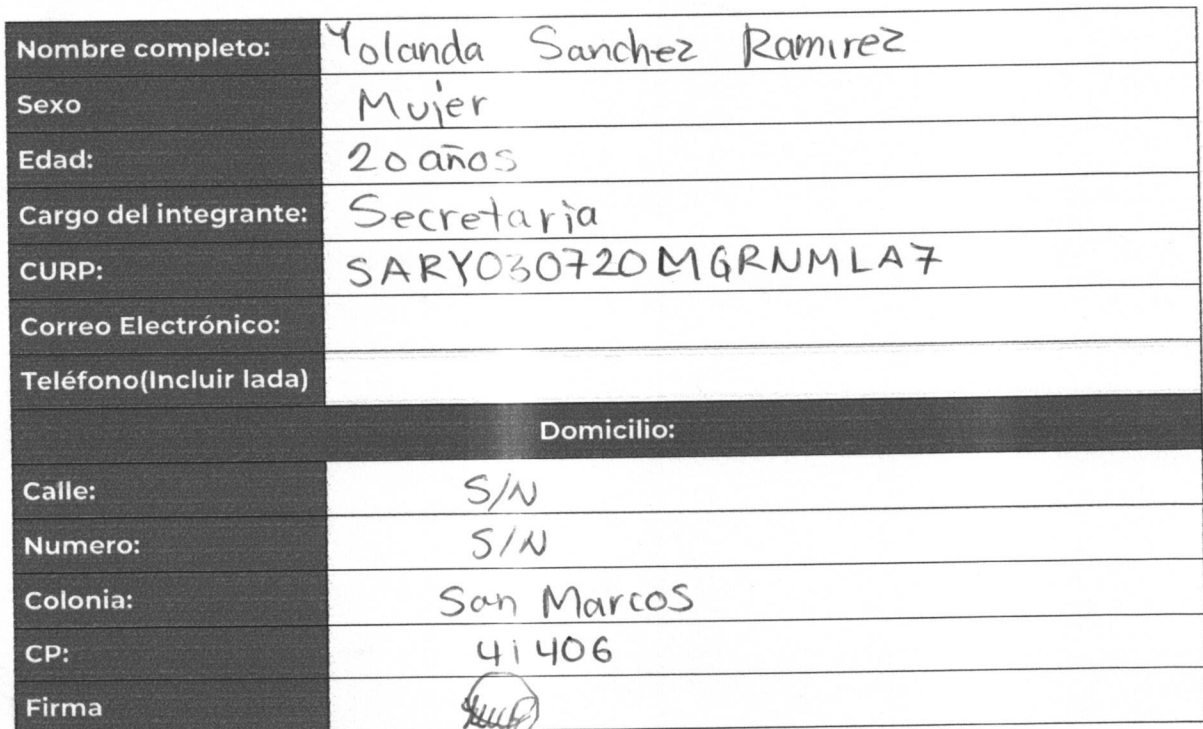 Nombre completo: Yolanda Sanchez Ramirez
Sexo Mujer
Edad: 20 años
Cargo del integrante: Secretaria
CURP: SARY030720MGRNMLA7
Correo Electrónico:
Teléfono(Incluir lada)
Domicilio:
Calle: S/N
Numero: S/N
Colonia: San Marcos
CP: 41406
Firma